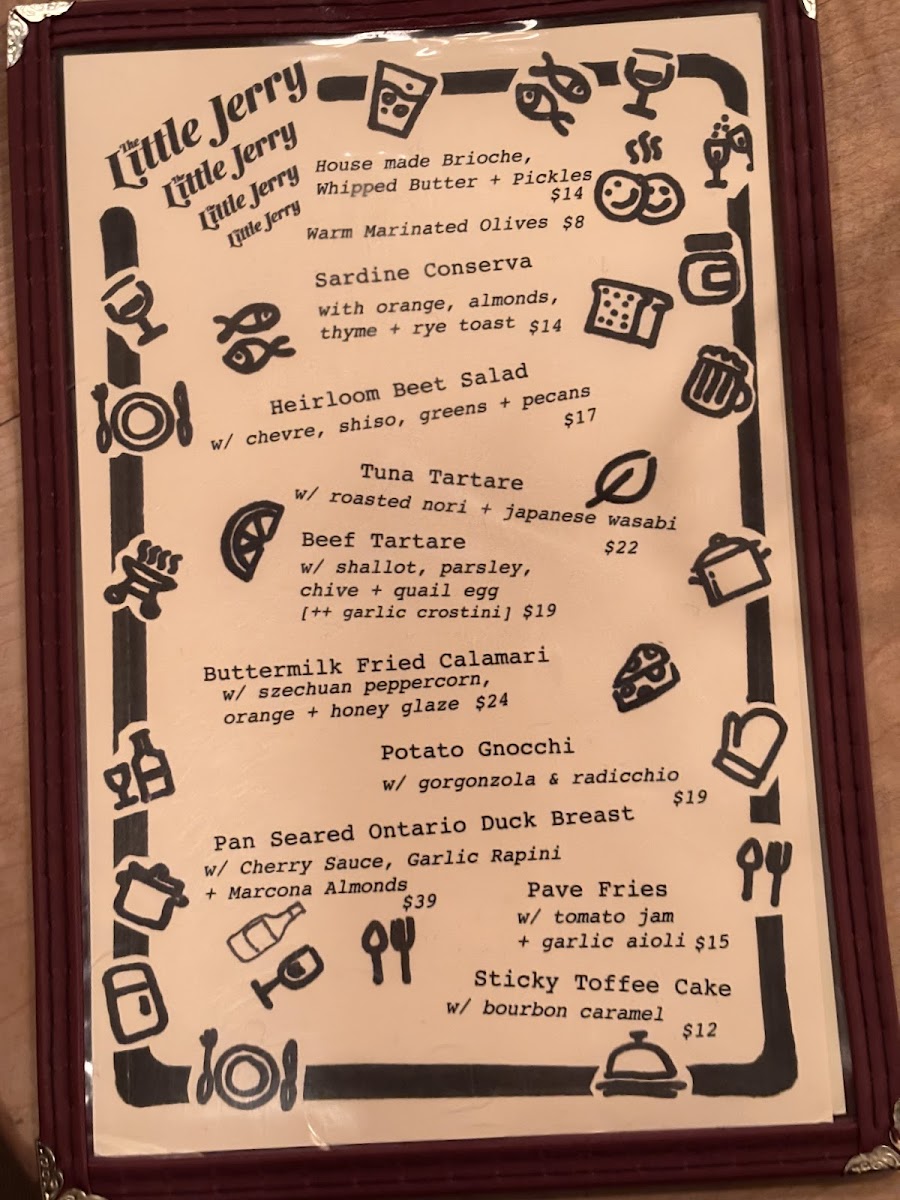 The Little Jerry
The Little Jerry
The Little Jerry
The Little Jerry
House made Brioche,
Whipped Butter + Pickles
$14
Warm Marinated Olives $8
Sardine Conserva
with orange, almonds,
thyme + rye toast $14
Heirloom Beet Salad
w/ chevre, shiso, greens + pecans
$17
Tuna Tartare
w/ roasted nori + japanese wasabi
$22
Beef Tartare
w/ shallot, parsley,
chive + quail egg
[++ garlic crostini] $19
Buttermilk Fried Calamari
w/ szechuan peppercorn,
orange + honey glaze $24
Potato Gnocchi
w/ gorgonzola & radicchio
$19
Pan Seared Ontario Duck Breast
w/ Cherry Sauce, Garlic Rapini
+ Marcona Almonds
$39
Pave Fries
w/ tomato jam
+ garlic aioli $15
Sticky Toffee Cake
w/ bourbon caramel
$12